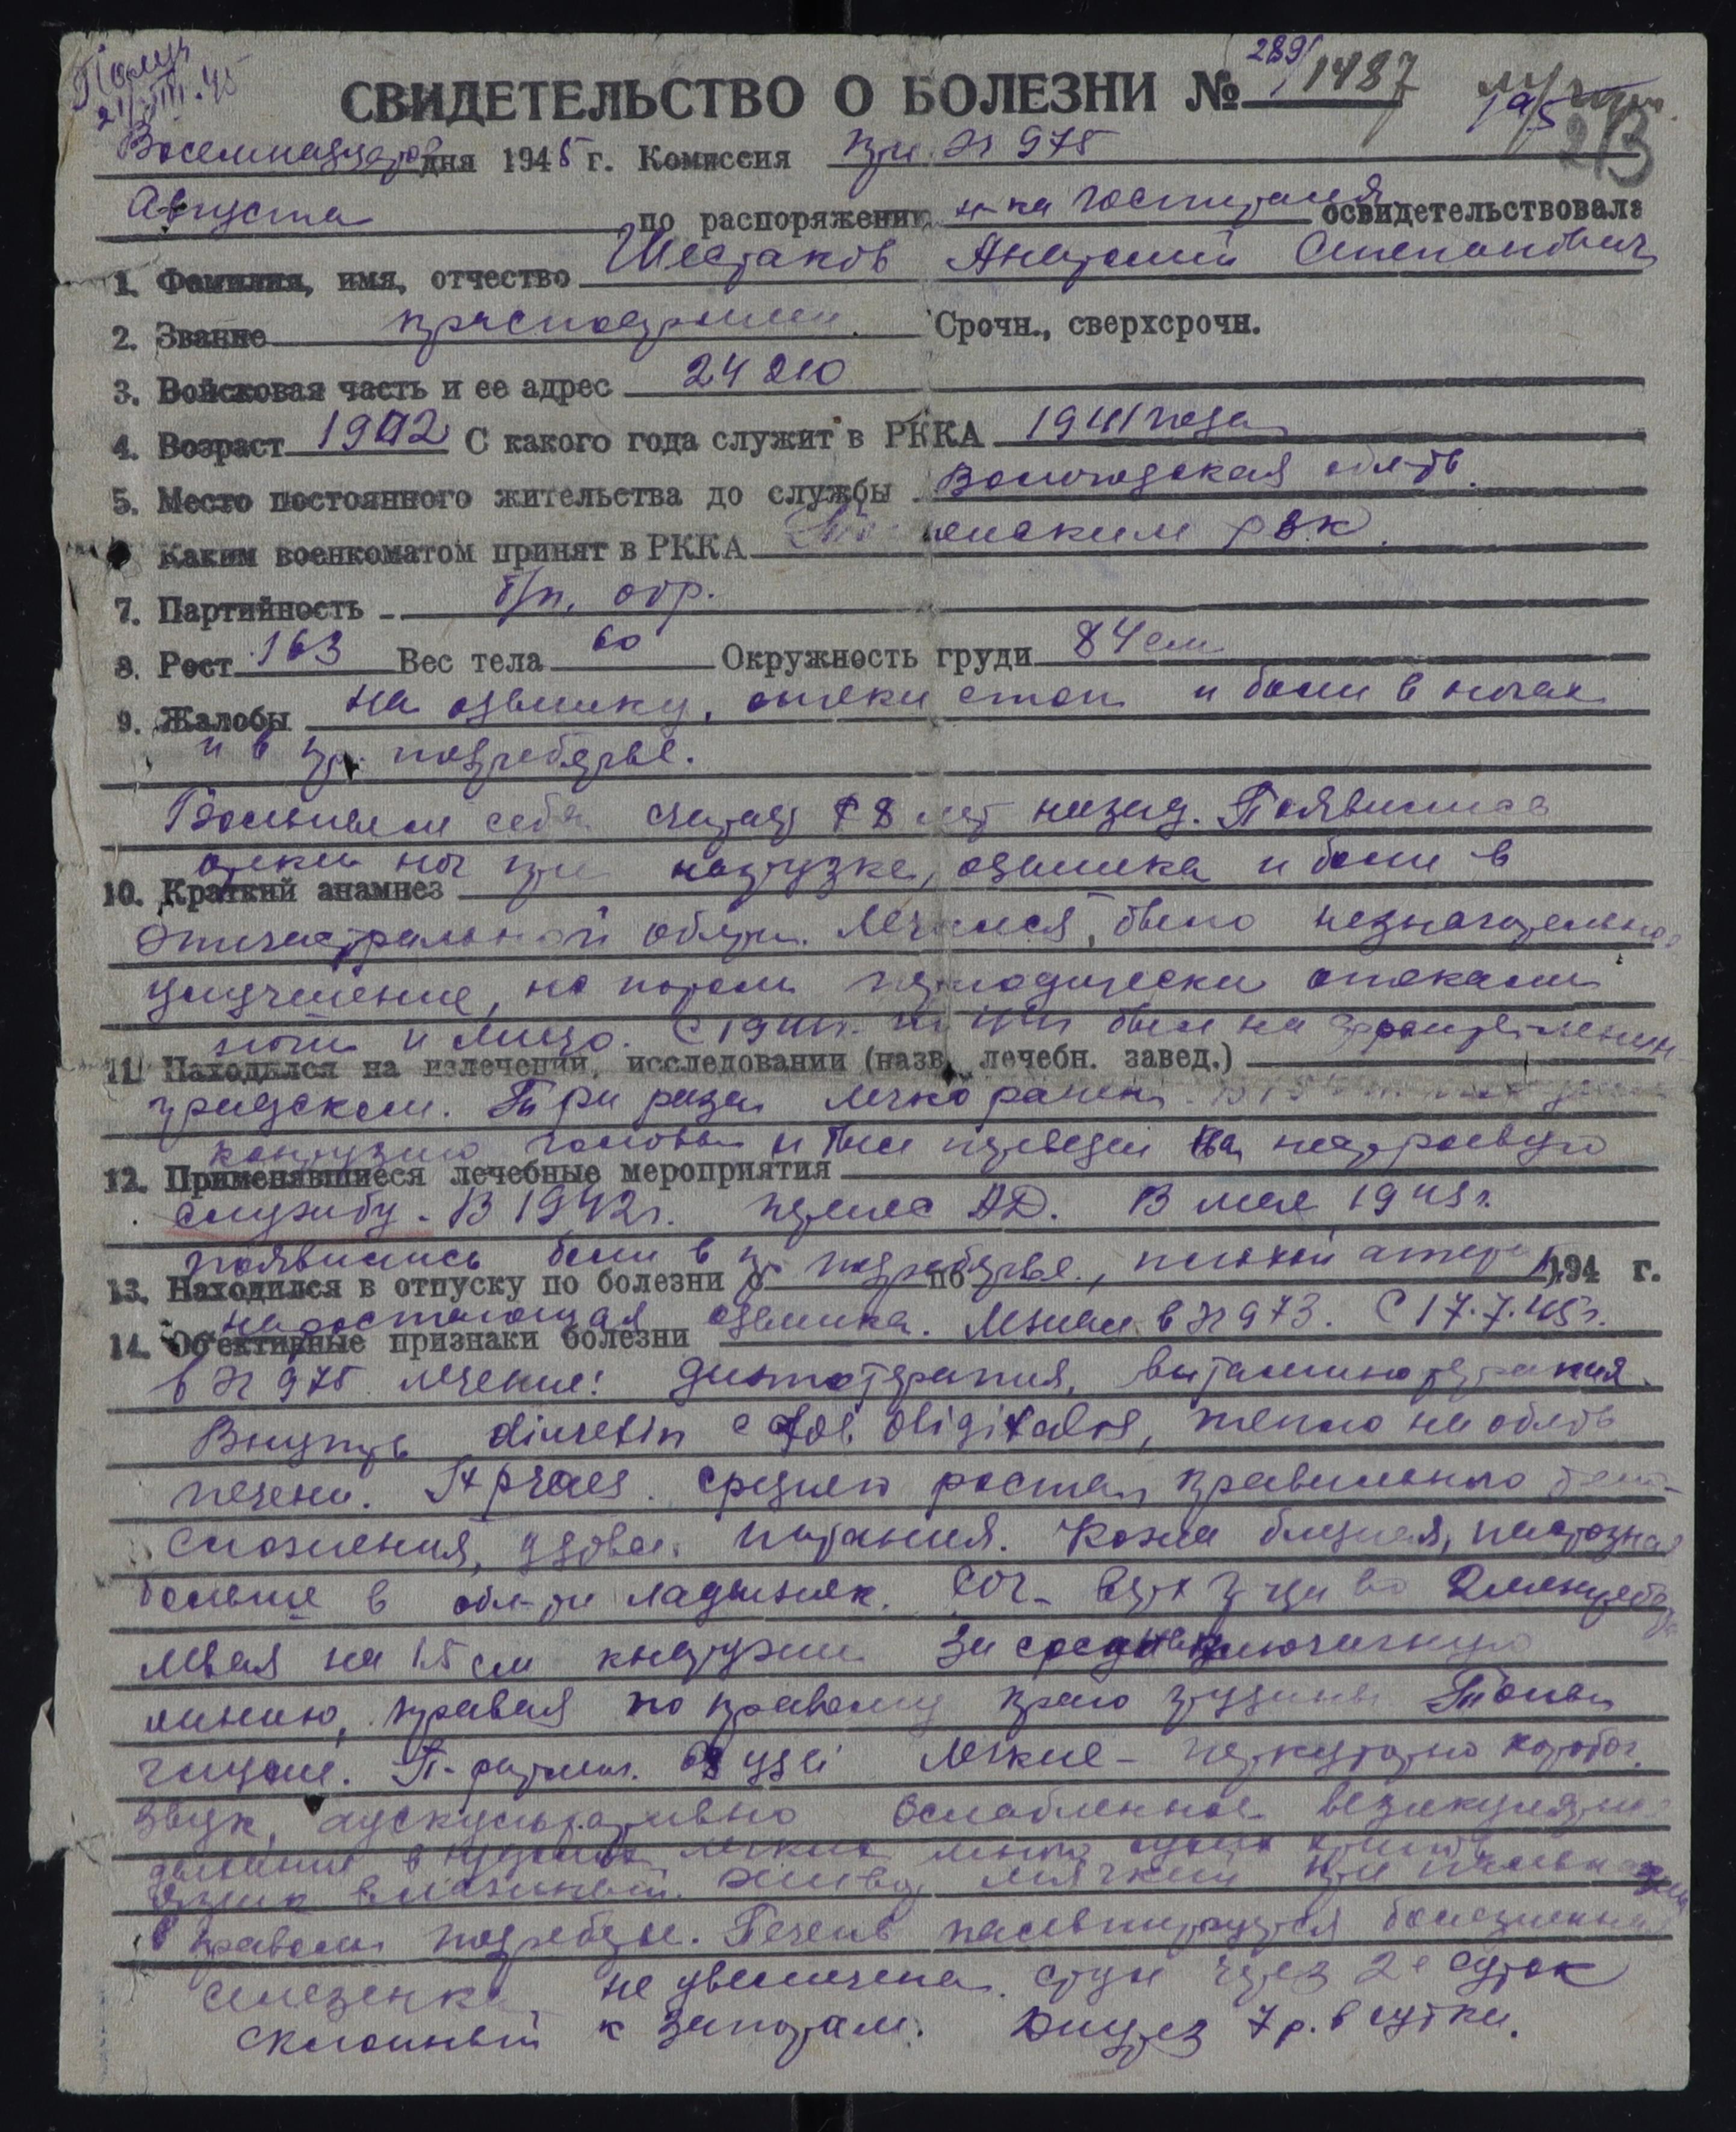 21/VIII.45
СВИДЕТЕЛЬСТВО О БОЛЕЗНИ № 289/1487
213
Восемнадцатого дня 1945 г. Комиссия при ЭГ 975
Августа по распоряжению н-ка госпиталя освидетельствовала
1. Фамилия, имя, отчество Шестаков Анатолий Степанович
2. Звание красноармеец. Срочн., сверхсрочн.
3. Войсковая часть и ее адрес 24210
4. Возраст 1902 С какого года служит в РККА 1941 года
5. Место постоянного жительства до службы Вологодская обл-ть.
Каким военкоматом принят в РККА РВК.
7. Партийность б/п,
8. Рост 163 Вес тела 60 Окружность груди 84 см
9. Жалобы На одышку, отеки стоп и боли в ногах
и в пр. подреберье.
Больным себя считает 8 лет назад. Появились
отеки ног при нагрузке, одышка и боли в
10. Краткий анамнез
эпигастральной обл-ти. Лечился, было незначительное
улучшение, но потом периодически отекали
ноги и лицо. С 1941г. по был на фронте Ленин-
11. Находился на излечении, исследовании (назв. лечебн. завед.)
градском. Три раза легко ранен.
контузию головы и был переведен на нестроевую
12. Применявшиеся лечебные мероприятия
службу. В 1942г. перенес АД. В мае 1945г.
появились боли в пр. подреберье, плохой аппетит,
13. Находился в отпуску по болезни с по 194 г.
нарастающая одышка. Лежал в ЭГ 973. С 17.7.45г.
14. Об'ективные признаки болезни
в ЭГ 975. лечение: диетотерапия, витаминотерапия.
Внутрь diuretin с fol. digitalis, тепло на обл-ть
печени. St. praes. среднего роста, правильного тело-
сложения, удовл. питания. Кожа бледная, пастозная
больше в обл-ти лодыжек. Сог- во 2 межреберье
левая на 1.5 см кнаружи за среднеключичную
линию, правая по правому краю грудины Тоны
глухие. П-ритмич. Легкие - перкуторно короб.
звук, аускультативно ослабленное везикулярное
дыхание, в легких много сухих хрипов
Язык влажный. Живот мягкий при пальпации
в правом подреберье. Печень пальпируется болезненная
селезенка не увеличена. Стул через 2е суток
склонный к запорам. Диурез 7 р. в сутки.